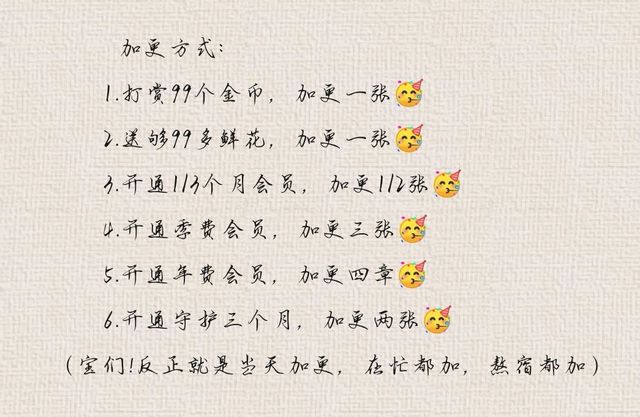 加更方式:
1.打赏99个金币，加更一张🥳
2.送够99多鲜花，加更一张🥳
3.开通113个月会员，加更112张🥳
4.开通季费会员，加更三张🥳
5.开通年费会员，加更四章🥳
6.开通守护三个月，加更两张🥳
(宝们!反正就是当天加更，在忙都加，熬宿都加)